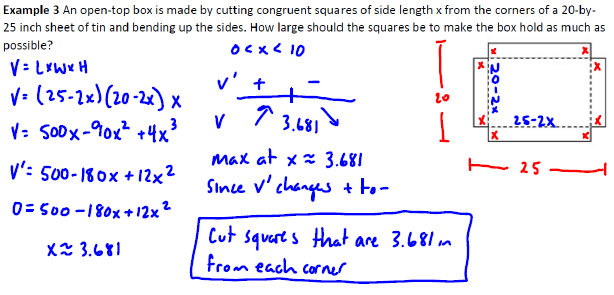 Example 3 An open-top box is made by cutting congruent squares of side length x from the corners of a 20-by-
25 inch sheet of tin and bending up the sides. How large should the squares be to make the box hold as much as
possible?
V = LxWxH
V = (25-2x)(20-2x) x
V = 500x - 90x² + 4x³
V' = 500 - 180x + 12x²
0 = 500 - 180x + 12x²
x ≈ 3.681
0 < x < 10
V' + -
V 3.681
max at x ≈ 3.681
Since V' changes + to -
Cut squares that are 3.681 in
from each corner
x x
x x
20
20-2x
25-2x
x x
x x
25